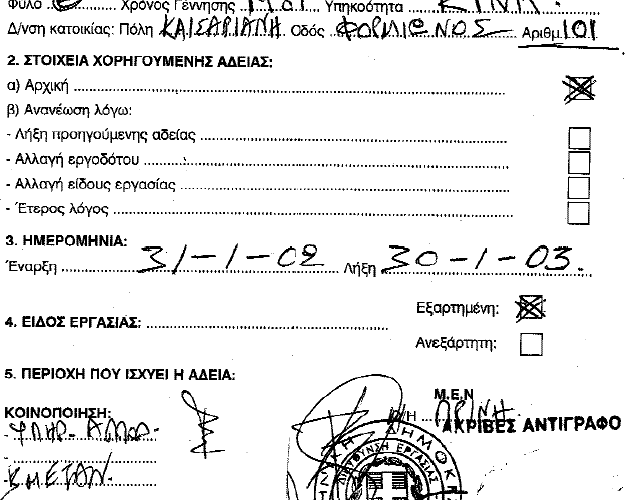 Φύλο Χρόνος Γέννησης Υπηκοότητα
Δ/νση κατοικίας: Πόλη ΚΑΙΣΑΡΙΑΝΗ Οδός ΦΟΡΜΙΩΝΟΣ Αριθμ. 101
2. ΣΤΟΙΧΕΙΑ ΧΟΡΗΓΟΥΜΕΝΗΣ ΑΔΕΙΑΣ:
α) Αρχική
β) Ανανέωση λόγω:
- Λήξη προηγούμενης αδείας
- Αλλαγή εργοδότου
- Αλλαγή είδους εργασίας
- Έτερος λόγος
3. ΗΜΕΡΟΜΗΝΙΑ:
Έναρξη 31-1-02 Λήξη 30-1-03
Εξαρτημένη:
4. ΕΙΔΟΣ ΕΡΓΑΣΙΑΣ:
Ανεξάρτητη:
5. ΠΕΡΙΟΧΗ ΠΟΥ ΙΣΧΥΕΙ Η ΑΔΕΙΑ:
Μ.Ε.Ν
ΚΟΙΝΟΠΟΙΗΣΗ:
ΑΚΡΙΒΕΣ ΑΝΤΙΓΡΑΦΟ
ΔΙΕΥΘΥΝΣΗ ΕΡΓΑΣΙΑΣ